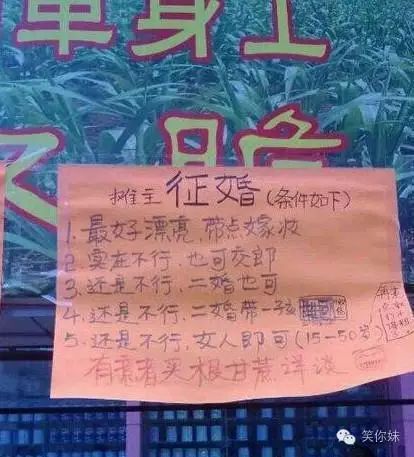 单身上
摊主 征婚 (条件如下)
1. 最好漂亮、带点嫁妆
2. 实在不行、也可交郎
3. 还是不行、二婚也可
4. 还是不行、二婚带一孩
5. 还是不行、女人即可(15-50岁)
有意者买根甘蔗详谈
笑你妹